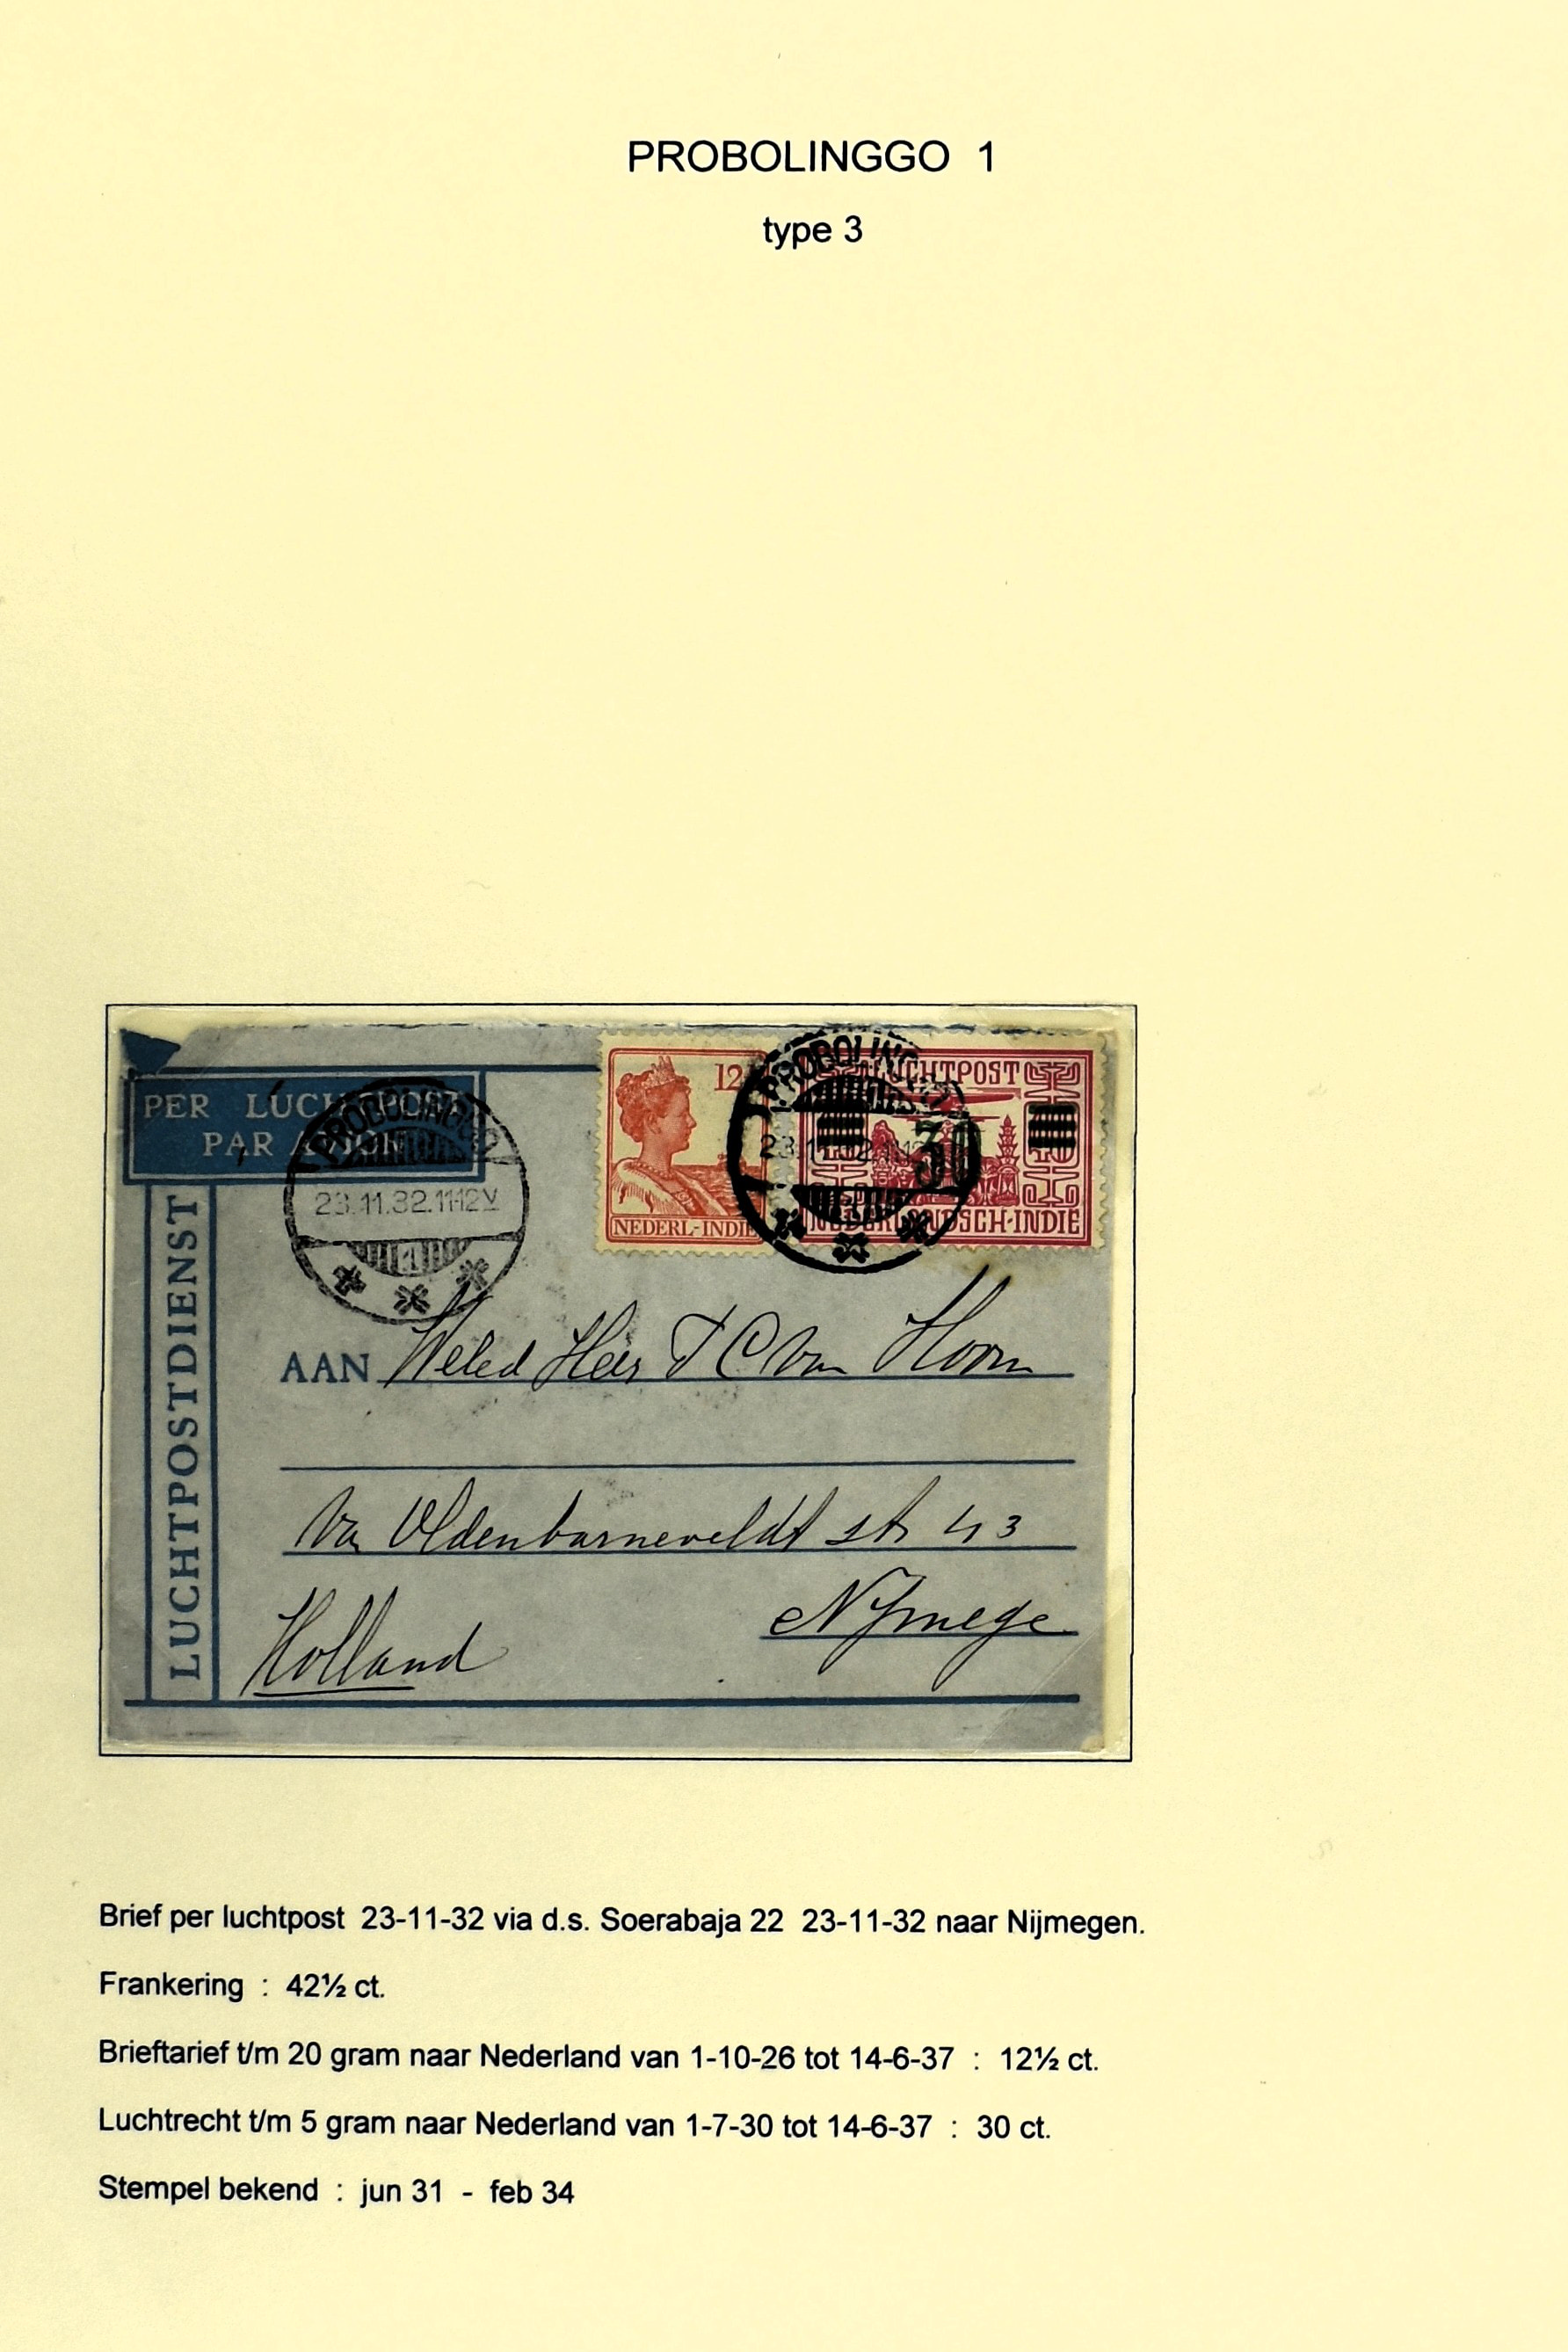 PROBOLINGGO 1
type 3
PER LUCHTPOST
PAR AVION
PROBOLINGGO
23.11.32.11-12V
1
12
NEDERL-INDIE
PROBOLINGGO
LUCHTPOST
30
40
NEDERLANDSCH-INDIE
LUCHTPOSTDIENST
AAN Weled Heer J C Van Hoorn
Van Oldenbarneveldt str 43
Nijmege
Holland
Brief per luchtpost 23-11-32 via d.s. Soerabaja 22 23-11-32 naar Nijmegen.
Frankering : 42½ ct.
Brieftarief t/m 20 gram naar Nederland van 1-10-26 tot 14-6-37 : 12½ ct.
Luchtrecht t/m 5 gram naar Nederland van 1-7-30 tot 14-6-37 : 30 ct.
Stempel bekend : jun 31 - feb 34